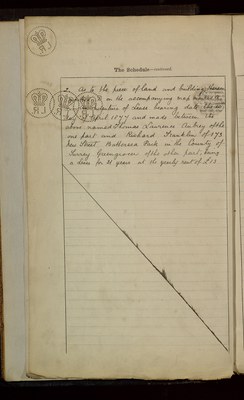 The Schedule—(continued)
2. As to the piece of land and buildings
in the accompanying map
Indenture of Lease bearing date the
day of April 1877 and made between the
above named Thomas Lawrence of the
one part and Richard Franklin of 173
New Street, Battersea Park in the County of
Surrey Greengrocer of the other part being
a Lease for 21 years at the yearly rent of £